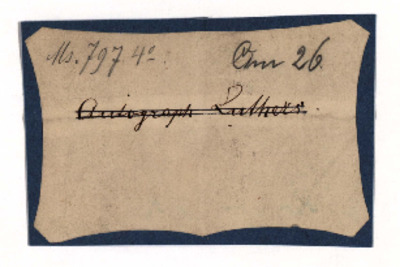 Ms. 797 4º. Cim 26
Autograph Luthers.